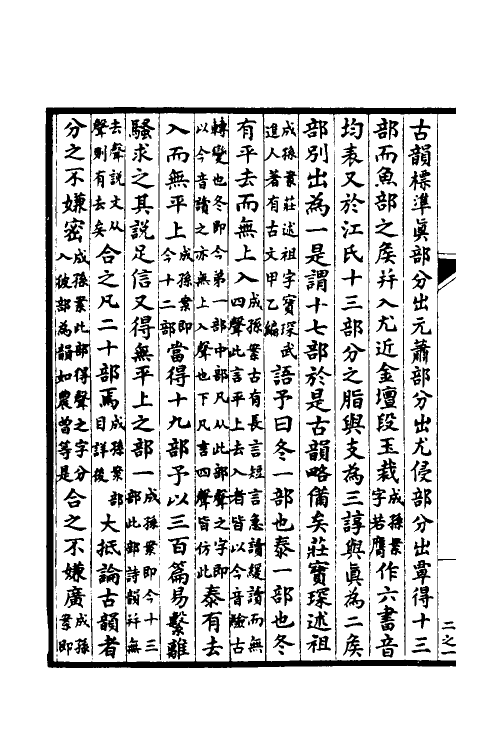 古韻標準真部分出元蕭部分出尤侵部分出覃得十三
部而魚部之矦幷入尤近金壇段玉裁成孫案字若膺作六書音
均表又於江氏十三部分之脂與支為三諄與眞為二矦
部別出為一是謂十七部於是古韻略備矣莊寶琛述祖
成孫案莊述祖字寶琛武進人著有古文甲乙編語予曰冬一部也泰一部也冬
有平去而無上入成孫案古有長言短言急讀緩讀而無四聲此言平上去入者皆以今音驗古
轉變也冬即今第一部中部凡从此部聲之字即以今音讀之亦無上入聲也下凡言四聲皆仿此泰有去
入而無平上成孫案即今十二部當得十九部予以三百篇易繫離
騷求之其說足信又得無平上之部一成孫案即今十三部此部詩韻幷無
去聲說文从聲則有去矣合之凡二十部焉成孫案部目詳後大抵論古韻者
分之不嫌密成孫案此部得聲之字分入彼部為韻如農曾等是合之不嫌廣成孫案即
二之一